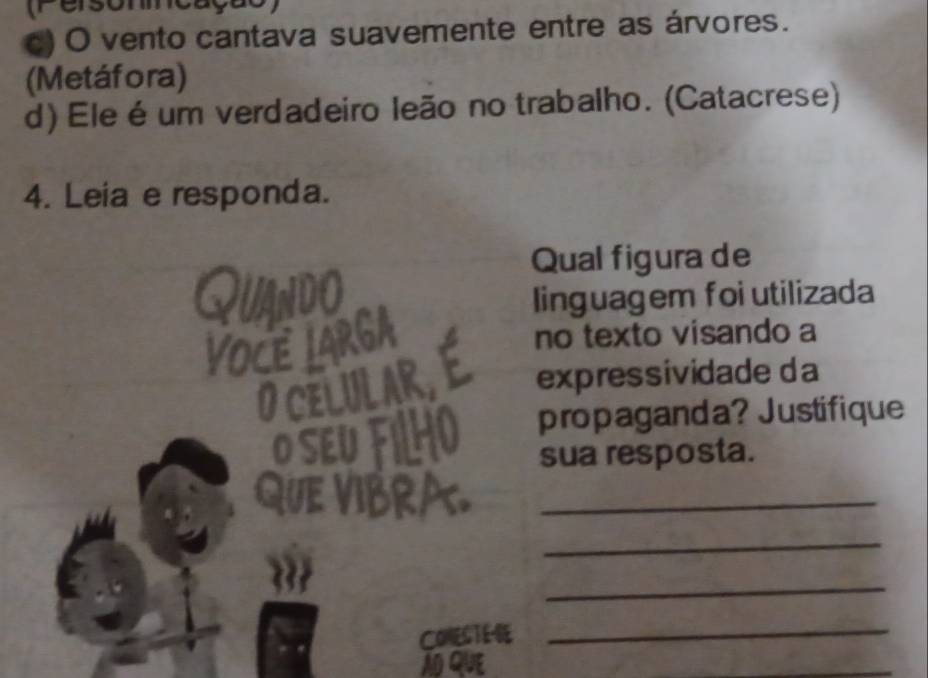 c) O vento cantava suavemente entre as árvores.
(Metáfora)
d) Ele é um verdadeiro leão no trabalho. (Catacrese)
4. Leia e responda.
QUANDO
VOCÊ LARGA
O CELULAR, É
O SEU FILHO
QUE VIBRA.
CONECTE-SE
AO QUE
Qual figura de
linguagem foi utilizada
no texto visando a
expressividade da
propaganda? Justifique
sua resposta.